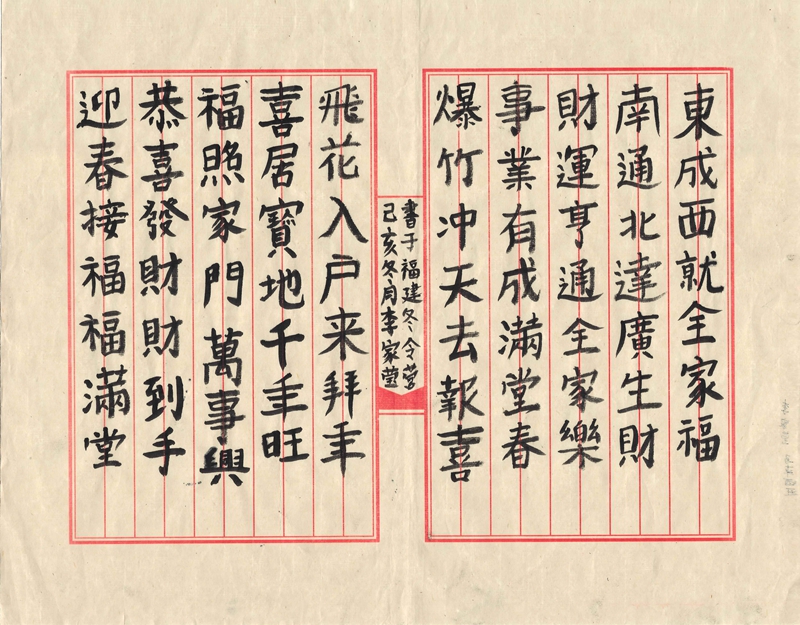 東成西就全家福
南通北達廣生財
財運亨通全家樂
事業有成滿堂春
爆竹冲天去報喜
書于福建冬令营
己亥冬月李家莹
飛花入户来拜年
喜居寶地千年旺
福照家門萬事興
恭喜發財財到手
迎春接福福滿堂